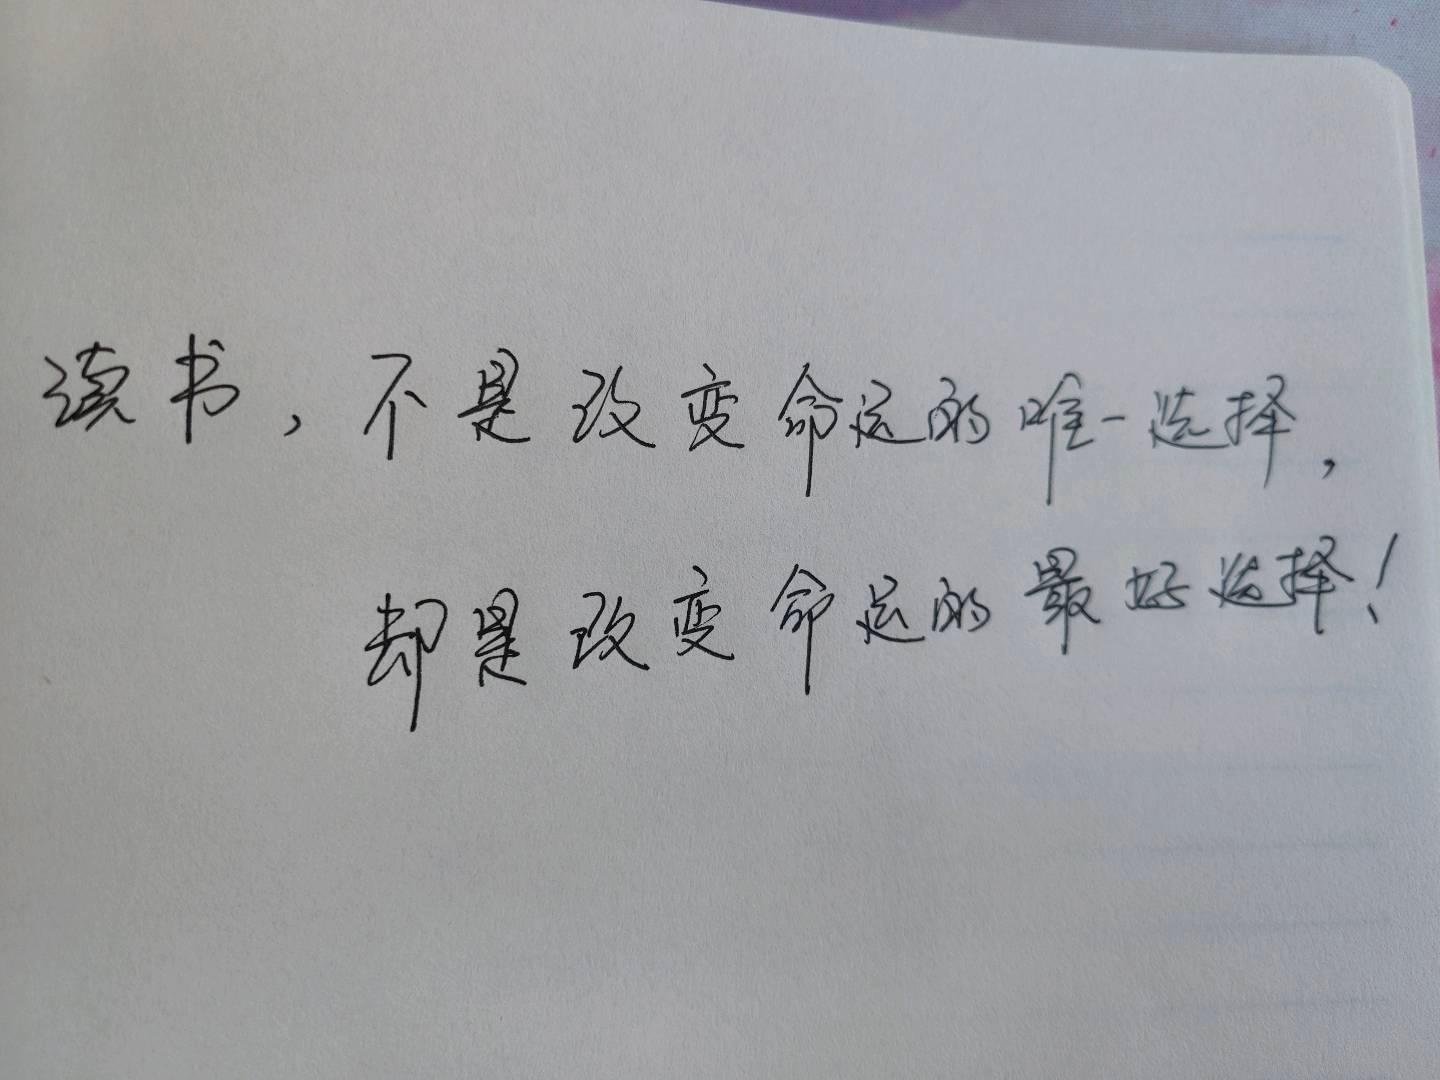 读书，不是改变命运的唯一选择，
却是改变命运的最好选择！